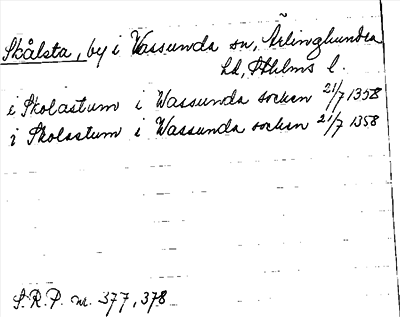 Skålsta, by i Vassunda sn, Ärlinghundra
hd, Sthlms l.
i Skolastum i Wassunda socken 21/7 1358
i Skolastum i Wassunda socken 21/7 1358
S.R.P. nr. 377, 378